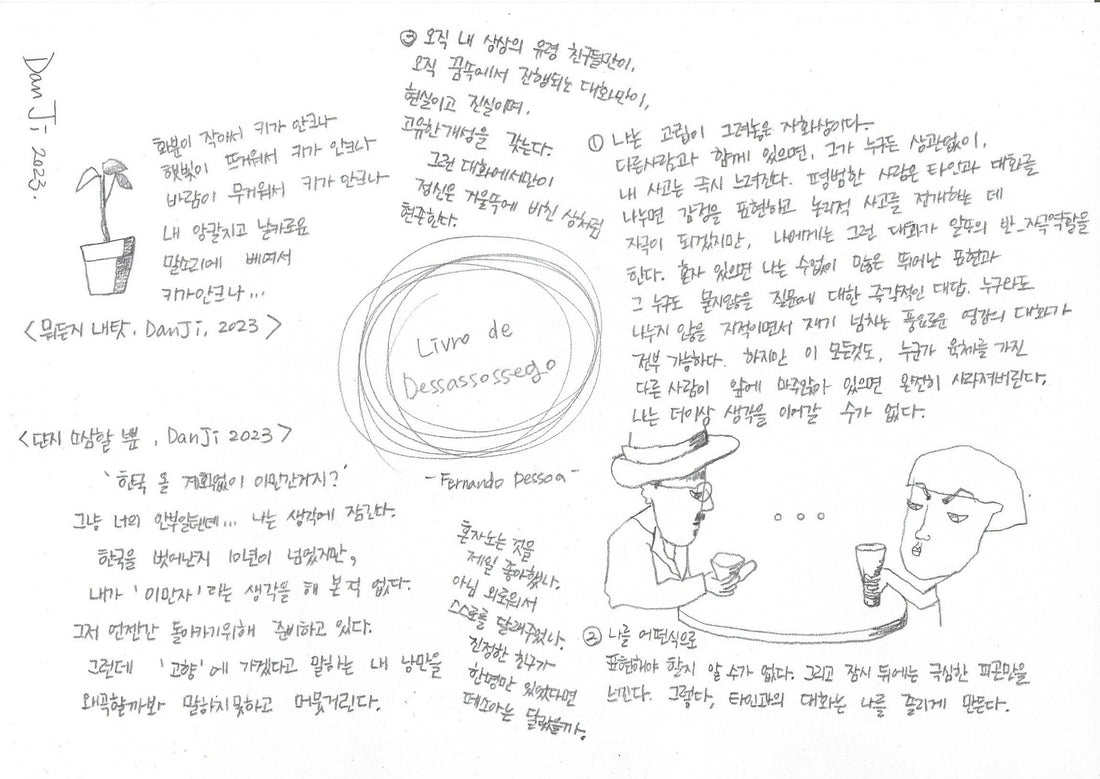 DanJi 2023.
화분이 작아서 키가 안크나
햇빛이 뜨거워서 키가 안크나
바람이 무거워서 키가 안크나
내 앙칼지고 날카로운
말소리에 베여서
키가안크나...
<뭐든지 내탓, DanJi, 2023>
③ 오직 내 상상의 유령 친구들만이,
오직 꿈속에서 진행되는 대화만이,
현실이고 진실이며,
고유한개성을 갖는다.
그런 대화에서만이
정신은 거울속에 비친 상처럼
현존한다.
① 나는 고립이 그려놓은 자화상이다.
다른사람과 함께 있으면, 그가 누구든 상관없이,
내 사고는 즉시 느려진다. 평범한 사람은 타인과 대화를
나누면 감정을 표현하고 논리적 사고를 전개하는 데
자극이 되겠지만, 나에게는 그런 대화가 일종의 반_자극역할을
한다. 혼자 있으면 나는 수없이 많은 뛰어난 표현과
그 누구도 묻지않을 질문에 대한 즉각적인 대답, 누구와도
나누지 않을 지적이면서 재기 넘치는 풍요로운 영감의 대화가
전부 가능하다. 하지만 이 모든것도, 누군가 육체를 가진
다른 사람이 앞에 마주앉아 있으면 온전히 사라져버린다.
나는 더이상 생각을 이어갈 수가 없다.
Livro de
Dessassossego
-Fernando Pessoa-
<단지 따삼할 뿐, DanJi 2023>
'한국 올 계획없이 이민간거지?'
그냥 너의 안부일텐데... 나는 생각에 잠긴다.
한국을 벗어난지 10년이 넘었지만,
내가 '이민자'라는 생각을 해 본적 없다.
그저 언젠간 돌아가기위해 준비하고 있다.
그런데 '고향'에 가겠다고 말하는 내 낭만을
왜곡할까봐 말하지못하고 머뭇거린다.
혼자노는 것을
제일 좋아했나,
아님 외로워서
스스로를 달래주었나.
진정한 친구가
한명만 있었다면
페소아는 달랐을까.
② 나를 어떤식으로
표현해야 할지 알 수가 없다. 그리고 잠시 뒤에는 극심한 피곤만을
느낀다. 그렇다, 타인과의 대화는 나를 졸리게 만든다.